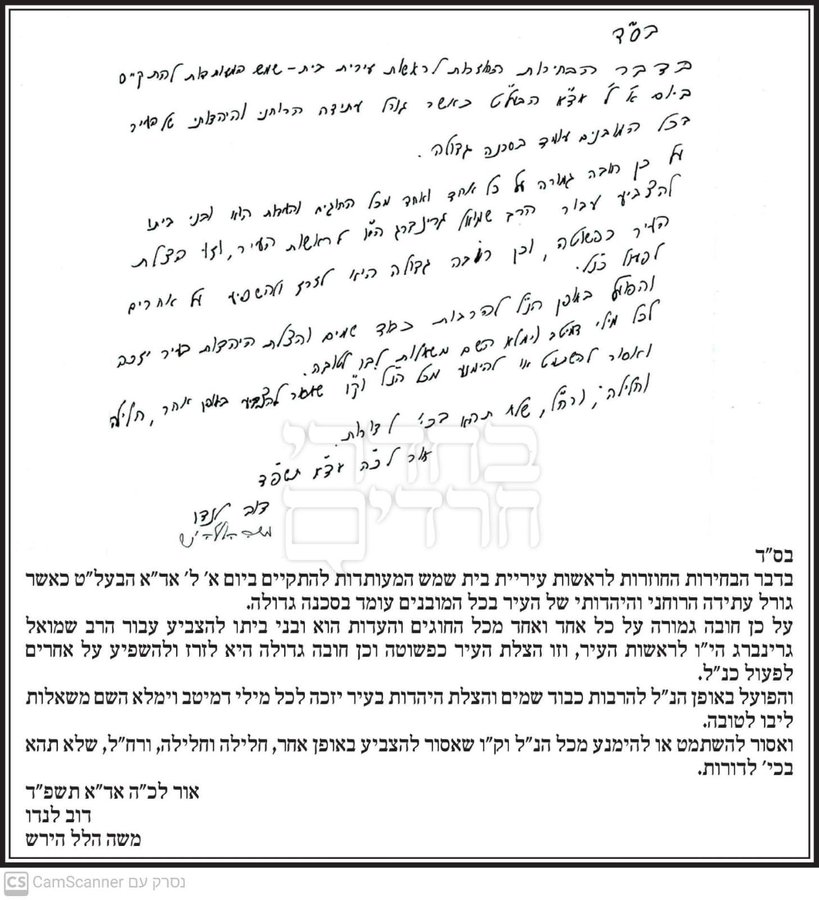 בס"ד
בדבר הבחירות החוזרות לראשות עירית בית-שמש המעותדות להתקיים
ביום א' ל' אד"א הבעל"ט כאשר גורל עתידה הרוחני והיהדותי של העיר
בכל המובנים עומד בסכנה גדולה.
על כן חובה גמורה על כל אחד ואחד מכל החוגים והעדות הוא ובני ביתו
להצביע עבור הרב שמואל גרינברג הי"ו לראשות העיר, וזו הצלת
העיר כפשוטה, וכן חובה גדולה היא לזרז ולהשפיע על אחרים
לפעול כנ"ל.
והפועל באופן הנ"ל להרבות כבוד שמים והצלת היהדות בעיר יזכה
לכל מילי דמיטב וימלא השם משאלות ליבו לטובה.
ואסור להשתמט או להימנע מכל הנ"ל וק"ו שאסור להצביע באופן אחר, חלילה
וחלילה, ורח"ל, שלא תהא בכי' לדורות.
אור לכ"ה אד"א תשפ"ד
דוב לנדו
משה הלל הירש
בחדרי
חרדים
בס"ד
בדבר הבחירות החוזרות לראשות עיריית בית שמש המעותדות להתקיים ביום א' ל' אד"א הבעל"ט כאשר
גורל עתידה הרוחני והיהדותי של העיר בכל המובנים עומד בסכנה גדולה.
על כן חובה גמורה על כל אחד ואחד מכל החוגים והעדות הוא ובני ביתו להצביע עבור הרב שמואל
גרינברג הי"ו לראשות העיר, וזו הצלת העיר כפשוטה וכן חובה גדולה היא לזרז ולהשפיע על אחרים
לפעול כנ"ל.
והפועל באופן הנ"ל להרבות כבוד שמים והצלת היהדות בעיר יזכה לכל מילי דמיטב וימלא השם משאלות
ליבו לטובה.
ואסור להשתמט או להימנע מכל הנ"ל וק"ו שאסור להצביע באופן אחר, חלילה וחלילה, ורח"ל, שלא תהא
בכי' לדורות.
אור לכ"ה אד"א תשפ"ד
דוב לנדו
משה הלל הירש
CS CamScanner נסרק עם